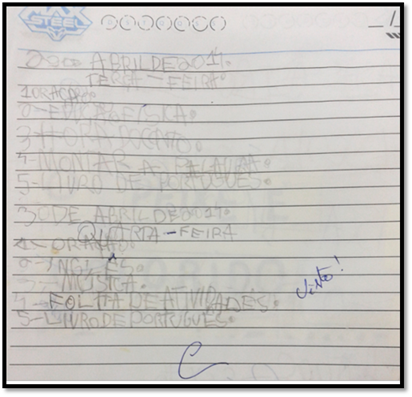 STEEL
ABRIL DE 2014.
TERÇA-FEIRA.
1ORAÇÃO.
2-EDUC. FÍSICA.
3-HORA DO CONTO.
4-MONTAR A PALAVRA.
5-LIVRO DE PORTUGUÊS.
30 DE ABRIL DE 2014.
QUARTA-FEIRA
1-ORAÇÃO.
2-INGLÊS.
3-MÚSICA.
4-FOLHA DE ATIVIDADES.
Visto!
5-LIVRO DE PORTUGUÊS.